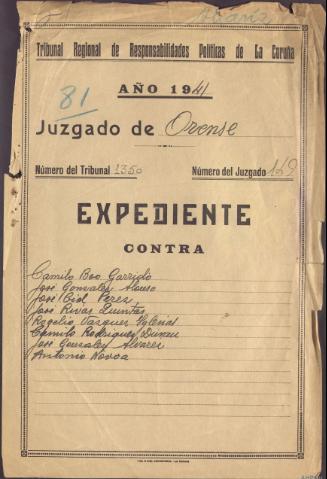 Tribunal Regional de Responsabilidades Políticas de La Coruña
AÑO 1941
81
Juzgado de Orense
Número del Tribunal 1350 Número del Juzgado 169
EXPEDIENTE
CONTRA
Camilo Boo Garrido
José Gonzalez Alonso
José Cid Perez
Jose Rivas Quintas
Rogelio Vazquez Yglesias
Camilo Rodriguez
José Gonzalez Alvarez
Antonio Novoa